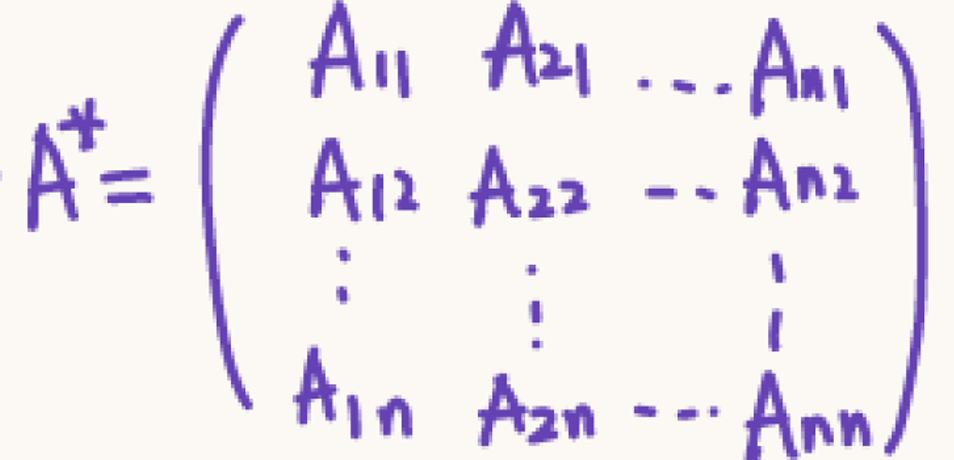 A* = ( A11 A21 ... An1
A12 A22 ... An2
⋮ ⋮ ⋮
A1n A2n ... Ann )